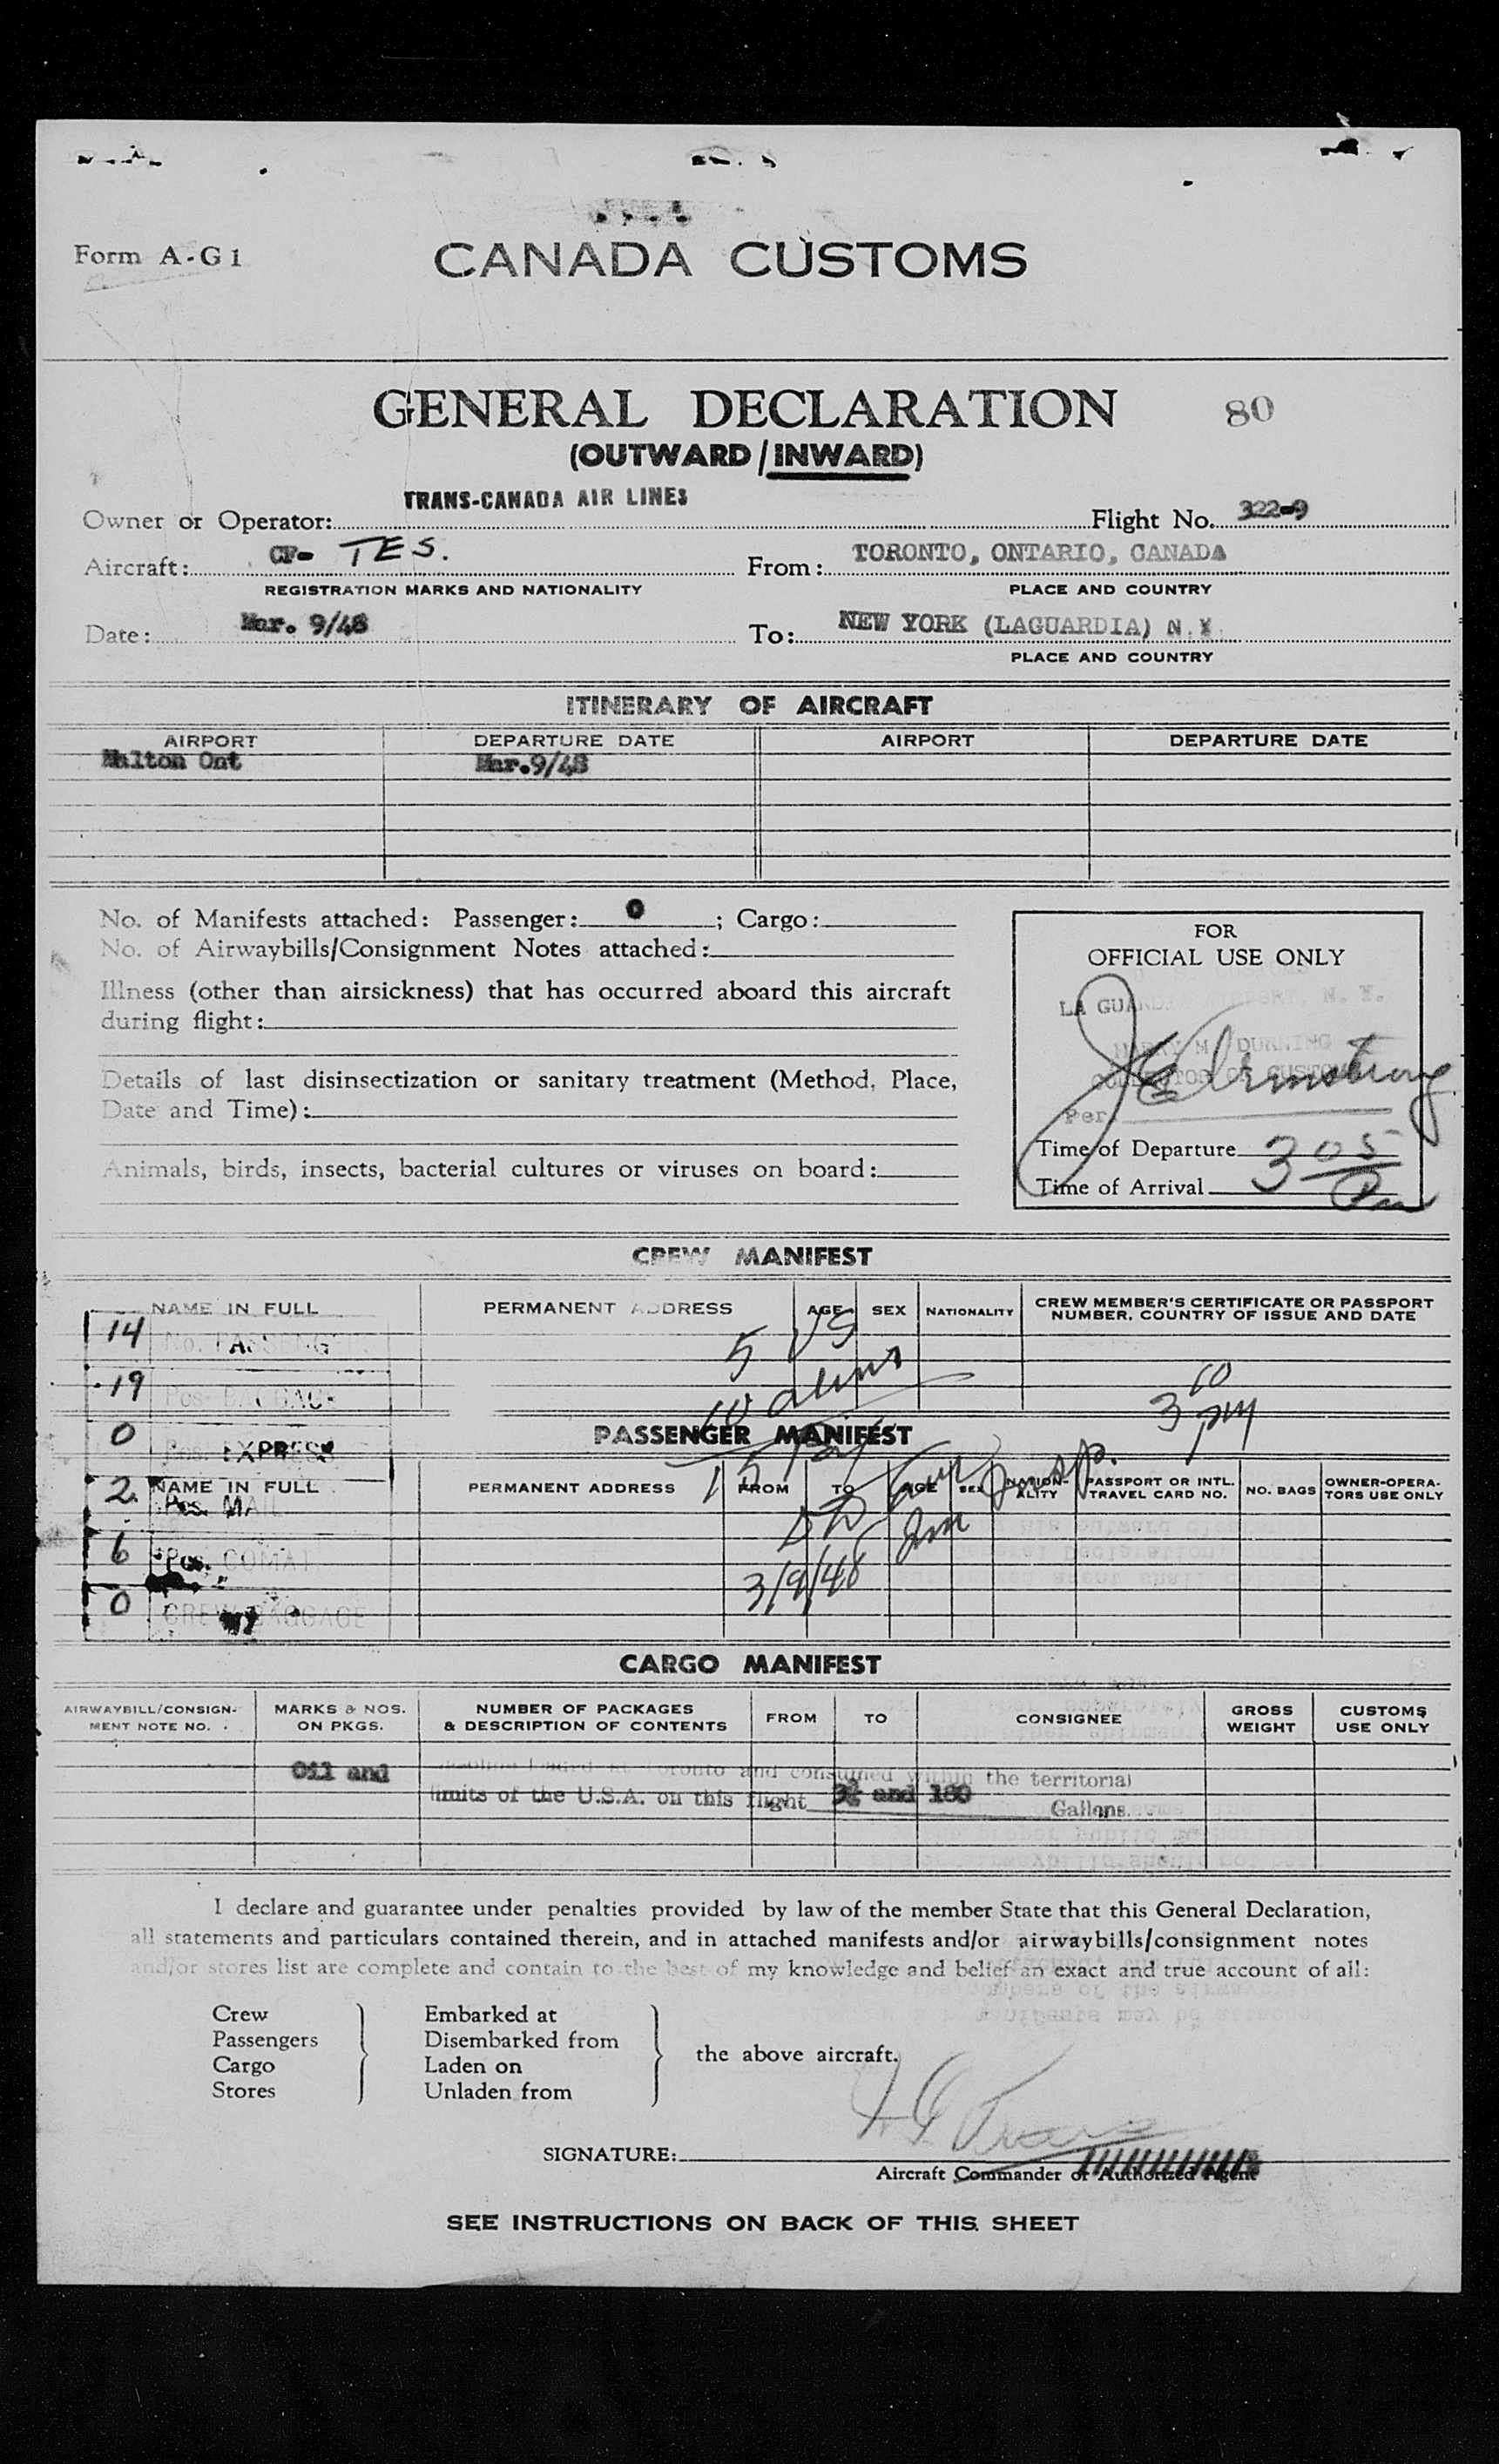 Form A-G1
CANADA CUSTOMS
GENERAL DECLARATION
80
(OUTWARD/INWARD)
TRANS-CANADA AIR LINES
Owner or Operator: Flight No. 322-9
Aircraft: CF- TES. From: TORONTO, ONTARIO, CANADA
REGISTRATION MARKS AND NATIONALITY PLACE AND COUNTRY
Date: Mar. 9/48 To: NEW YORK (LAGUARDIA) N.Y.
PLACE AND COUNTRY
ITINERARY OF AIRCRAFT
AIRPORT DEPARTURE DATE AIRPORT DEPARTURE DATE
Malton Ont Mar.9/48
No. of Manifests attached: Passenger: 0 ; Cargo:
No. of Airwaybills/Consignment Notes attached:
Illness (other than airsickness) that has occurred aboard this aircraft
during flight:
Details of last disinsectization or sanitary treatment (Method, Place,
Date and Time):
Animals, birds, insects, bacterial cultures or viruses on board:
FOR
OFFICIAL USE ONLY
LA GUARDIA AIRPORT, N. Y.
HARRY M. DURNING
COLLECTOR OF CUSTOMS
Armstrong
Per.
Time of Departure 3 05
Time of Arrival Pm
CREW MANIFEST
NAME IN FULL PERMANENT ADDRESS AGE SEX NATIONALITY CREW MEMBER'S CERTIFICATE OR PASSPORT
NUMBER, COUNTRY OF ISSUE AND DATE
14 No. PASSENGERS
5 US
19 Pcs. BAGGAGE
10 aliens
3 10 PM
0 Pcs. EXPRESS
PASSENGER MANIFEST
15
Insp.
NAME IN FULL PERMANENT ADDRESS FROM TO AGE SEX NATION-
ALITY PASSPORT OR INTL.
TRAVEL CARD NO. NO. BAGS OWNER-OPERA-
TORS USE ONLY
2 Pcs. MAIL
6 Pcs. COMAT
3/9/48
0 CREW BAGGAGE
CARGO MANIFEST
AIRWAYBILL/CONSIGN-
MENT NOTE NO. MARKS & NOS.
ON PKGS. NUMBER OF PACKAGES
& DESCRIPTION OF CONTENTS FROM TO CONSIGNEE GROSS
WEIGHT CUSTOMS
USE ONLY
Oil and gasoline loaded at Toronto and consumed within the territorial
limits of the U.S.A. on this flight 3¾ and 180 Gallons.
I declare and guarantee under penalties provided by law of the member State that this General Declaration,
all statements and particulars contained therein, and in attached manifests and/or airwaybills/consignment notes
and/or stores list are complete and contain to the best of my knowledge and belief an exact and true account of all:
Crew Embarked at
Passengers Disembarked from
Cargo Laden on
Stores Unladen from
the above aircraft.
SIGNATURE:
Aircraft Commander or Authorized Agent
SEE INSTRUCTIONS ON BACK OF THIS SHEET